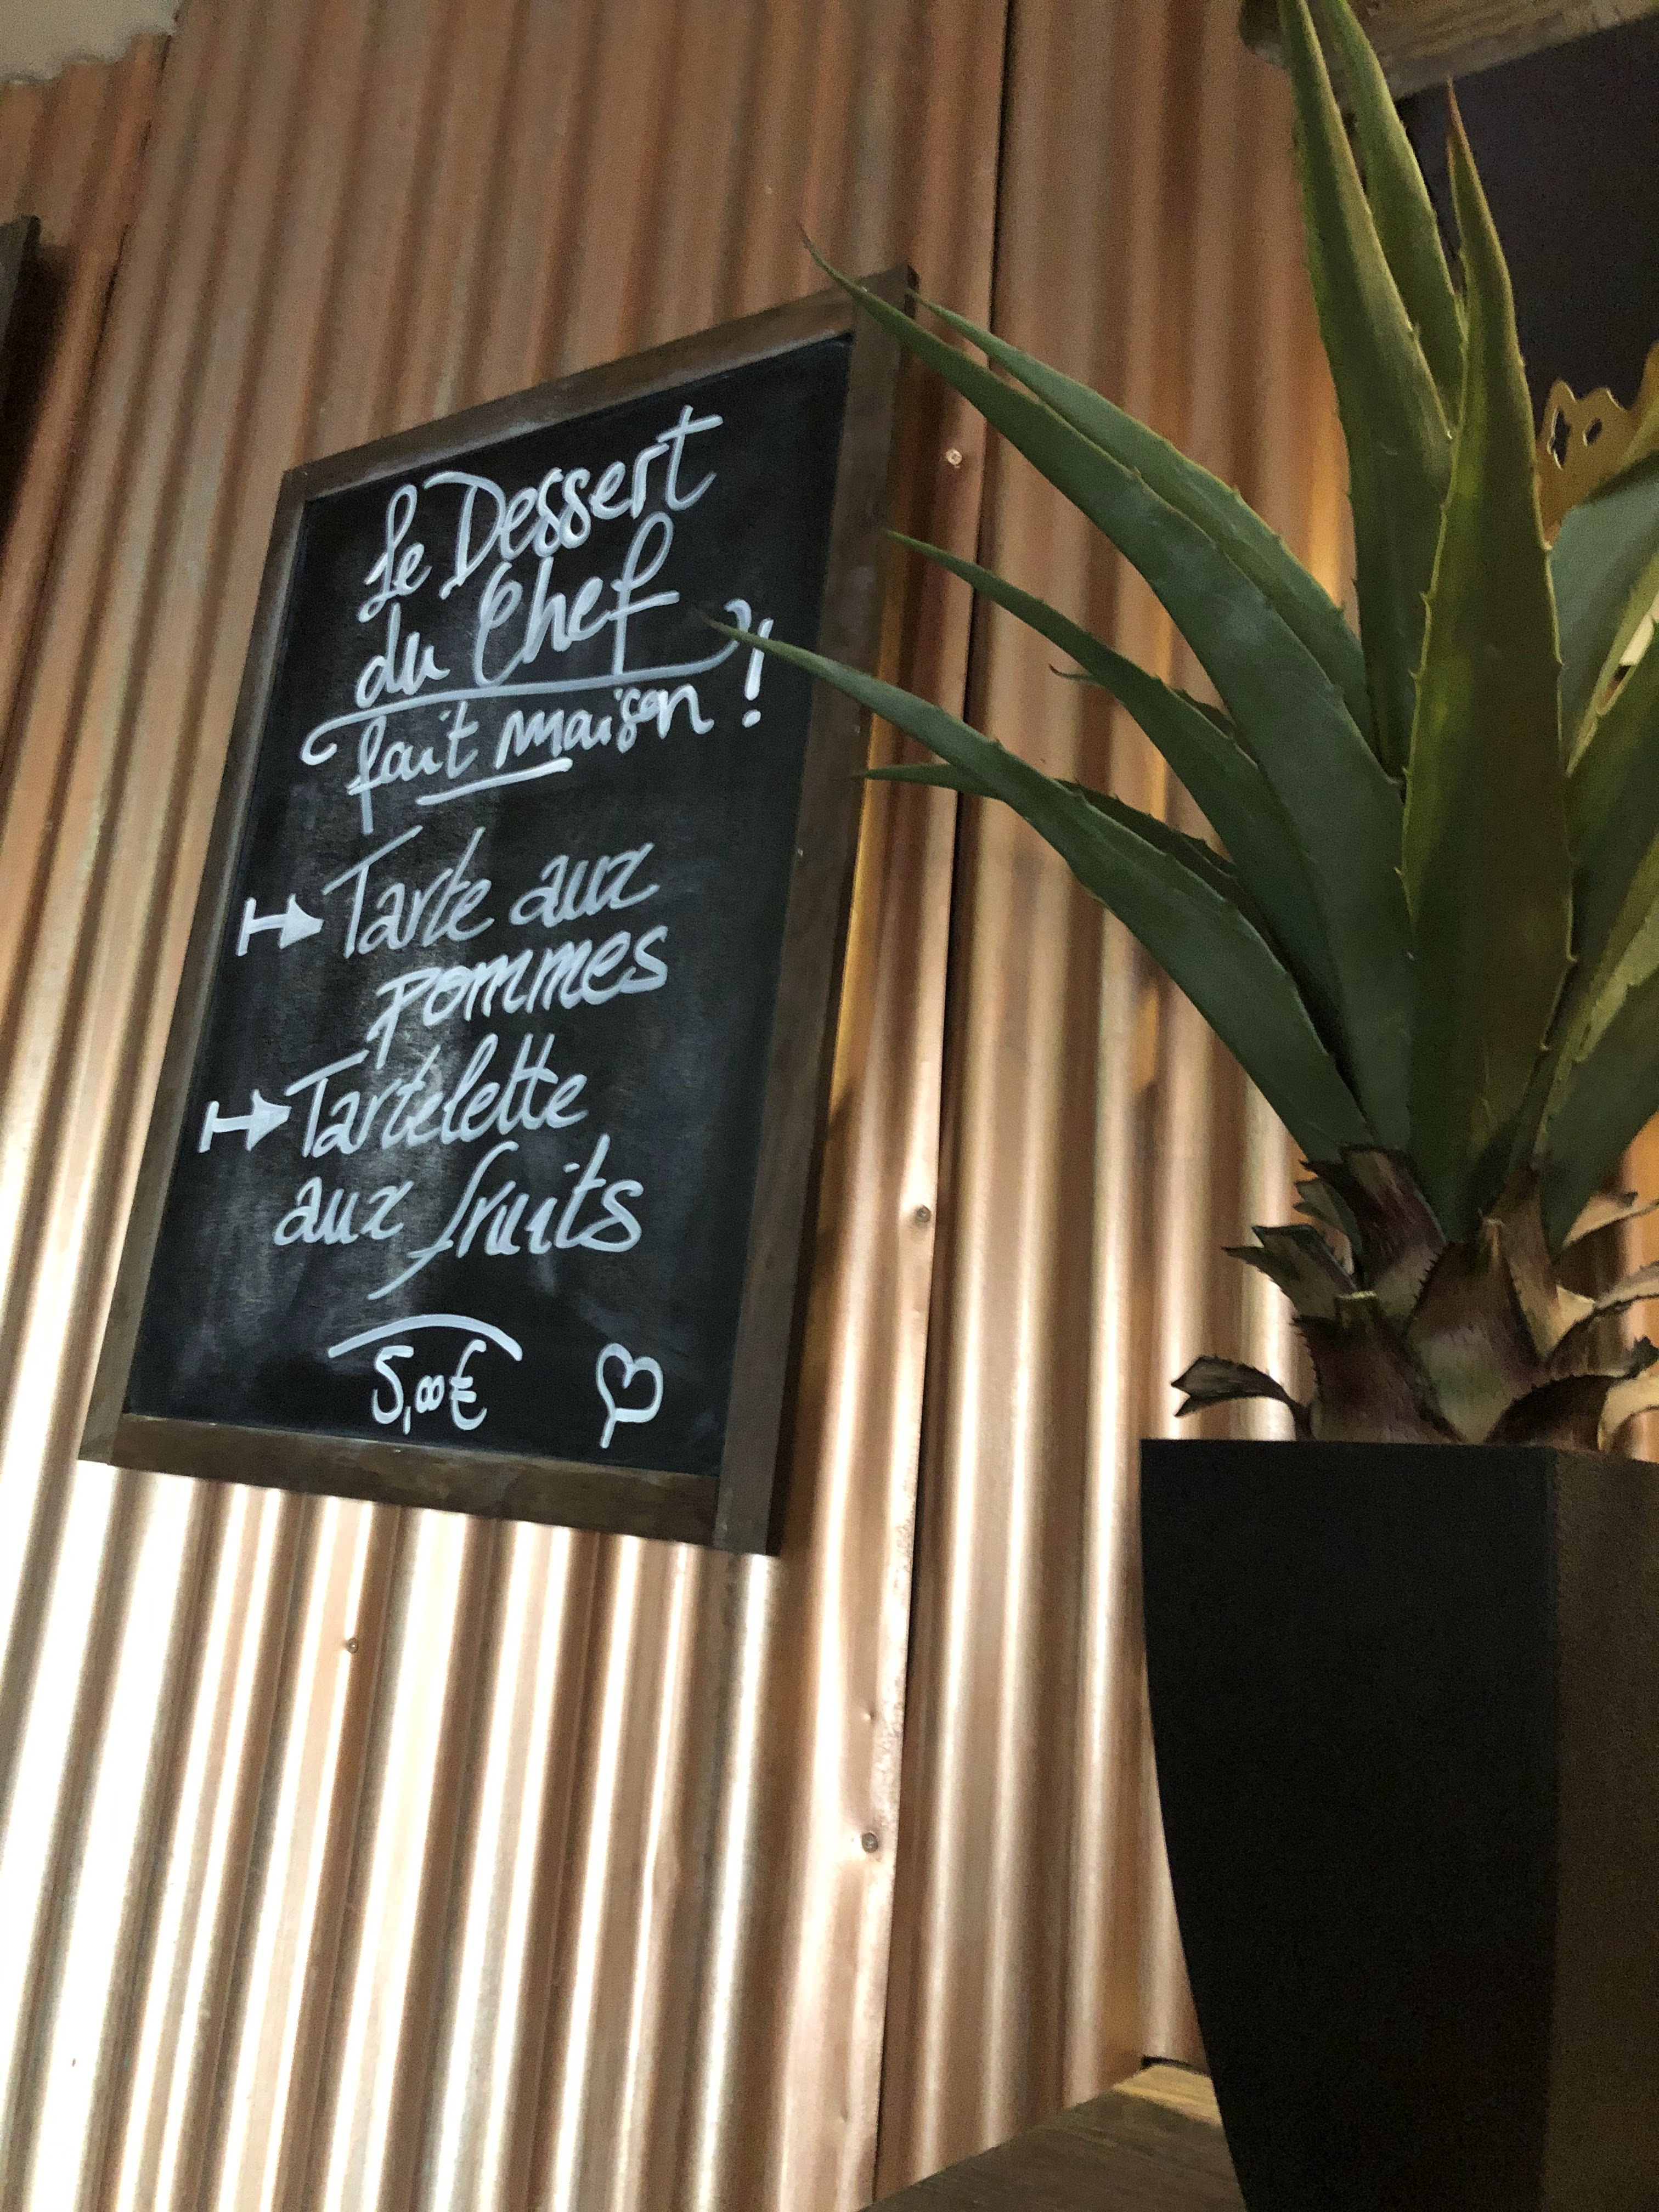 Le Dessert
du Chef
fait maison !
Tarte aux
pommes
Tartelette
aux fruits
5,00€